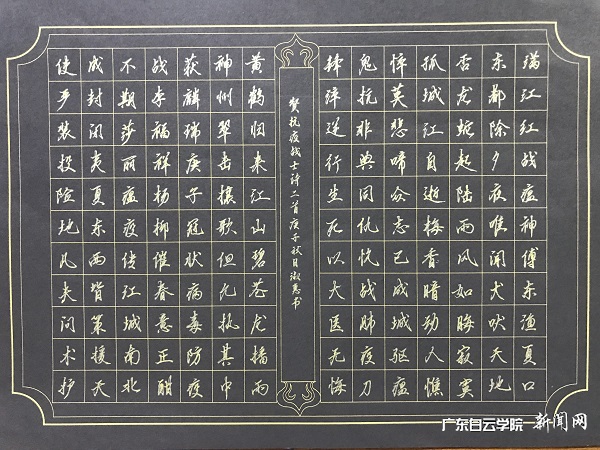 满江红战瘟神傅东渔夏口
东都除夕夜唯闻犬吠天地
否龙蛇起陆雨风如晦寂寞
孤城江自逝梅香暗动人憔
悴莫悲啼众志已成城驱瘟
鬼抗非典同仇忾战肺疫刀
锋淬逆行生死以大医无悔
赞抗疫战士诗二首庚子秋月淑惠书
黄鹤归来江山碧苍龙播雨
神州翠击壤歌但凡执其中
获麟瑞庚子冠状病毒防疫
战李福祥杨柳催春意正酣
不期莎丽瘟疫偻江城南北
成封闭夷夏东西皆策援天
使严装投险地凡夫问术护
广东白云学院 新闻网